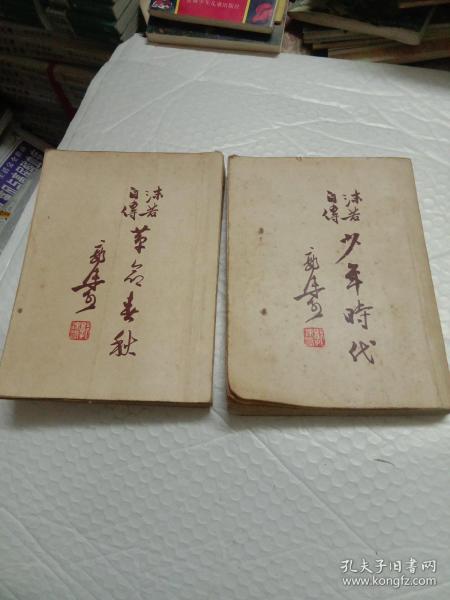 安徽少年儿童出版社
沫若
自傳
革命春秋
郭沫若
沫若
自傳
少年時代
郭沫若
孔夫子旧书网
www.kongfz.com